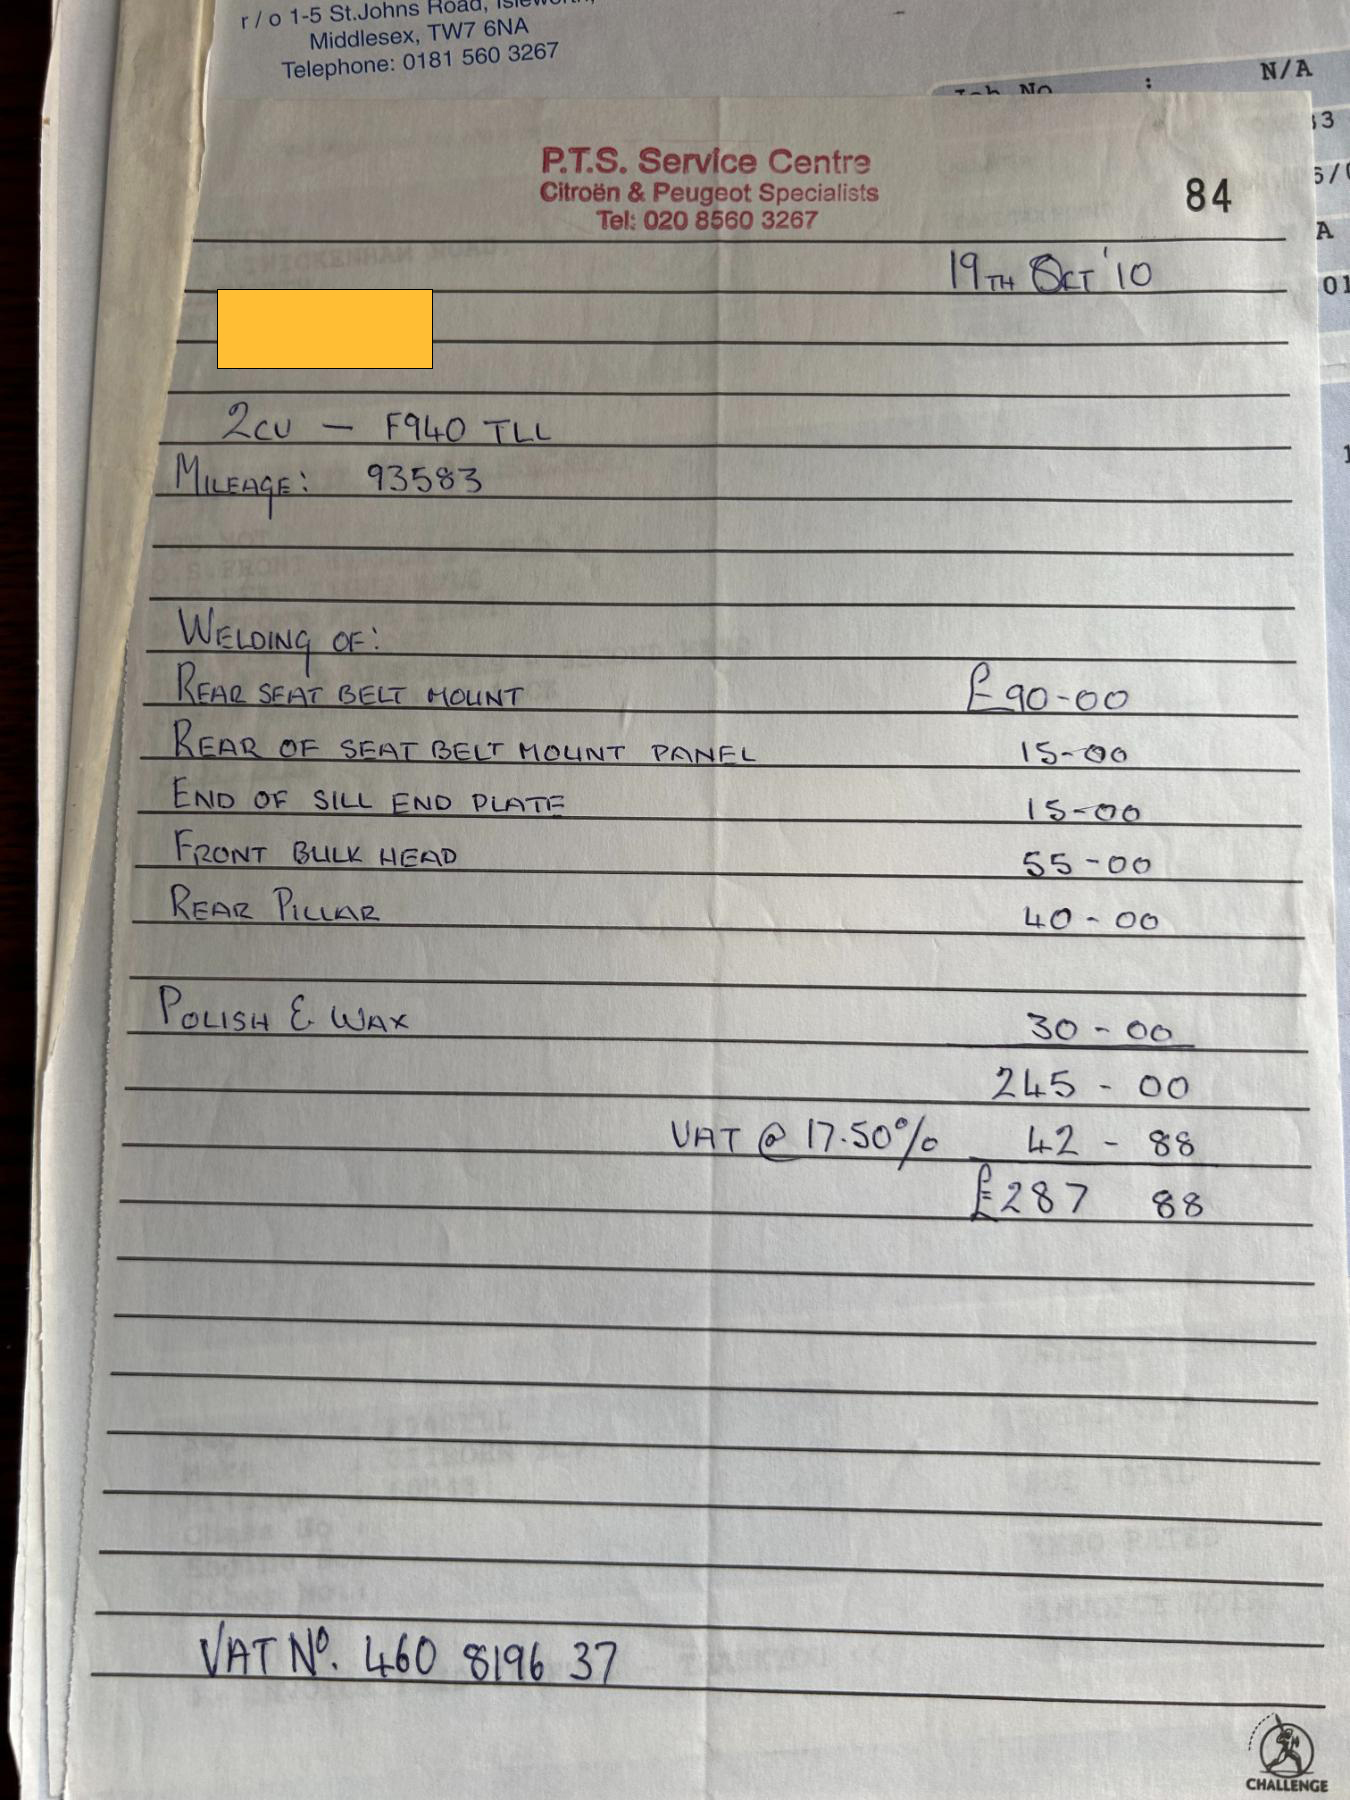 r / o 1-5 St.Johns Road, Isleworth,
Middlesex, TW7 6NA
Telephone: 0181 560 3267
Job No : N/A
P.T.S. Service Centre
Citroën & Peugeot Specialists
Tel: 020 8560 3267
84
19TH OCT '10
2CV - F940 TLL
MILEAGE: 93583
WELDING OF:
REAR SEAT BELT MOUNT £90-00
REAR OF SEAT BELT MOUNT PANEL 15-00
END OF SILL END PLATE 15-00
FRONT BULK HEAD 55-00
REAR PILLAR 40-00
POLISH & WAX 30-00
245-00
VAT @ 17.50% 42-88
£287 88
VAT No. 460 8196 37
CHALLENGE